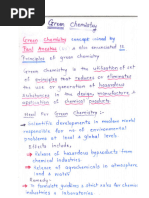 Green Chemistry
Green Chemistry concept coined by
Paul Anastas & also enunciated 12
Principles of green chemistry.
Green Chemistry is the utilisation of set
of principles that reduces or eliminates
the use or generation of hazardous
substances in the design, manufacture &
application of chemical products.
Need For Green Chemistry :-
Scientific developments in modern world
responsible for no. of environmental
problems at local & global levels.
Effects include,
Release of hazardous byproducts from
chemical industries.
Release of agrochemicals in atmosphere
(land & water)
Remedy -
To formulate guidelines & strict rules for chemical
industries & laboratories.